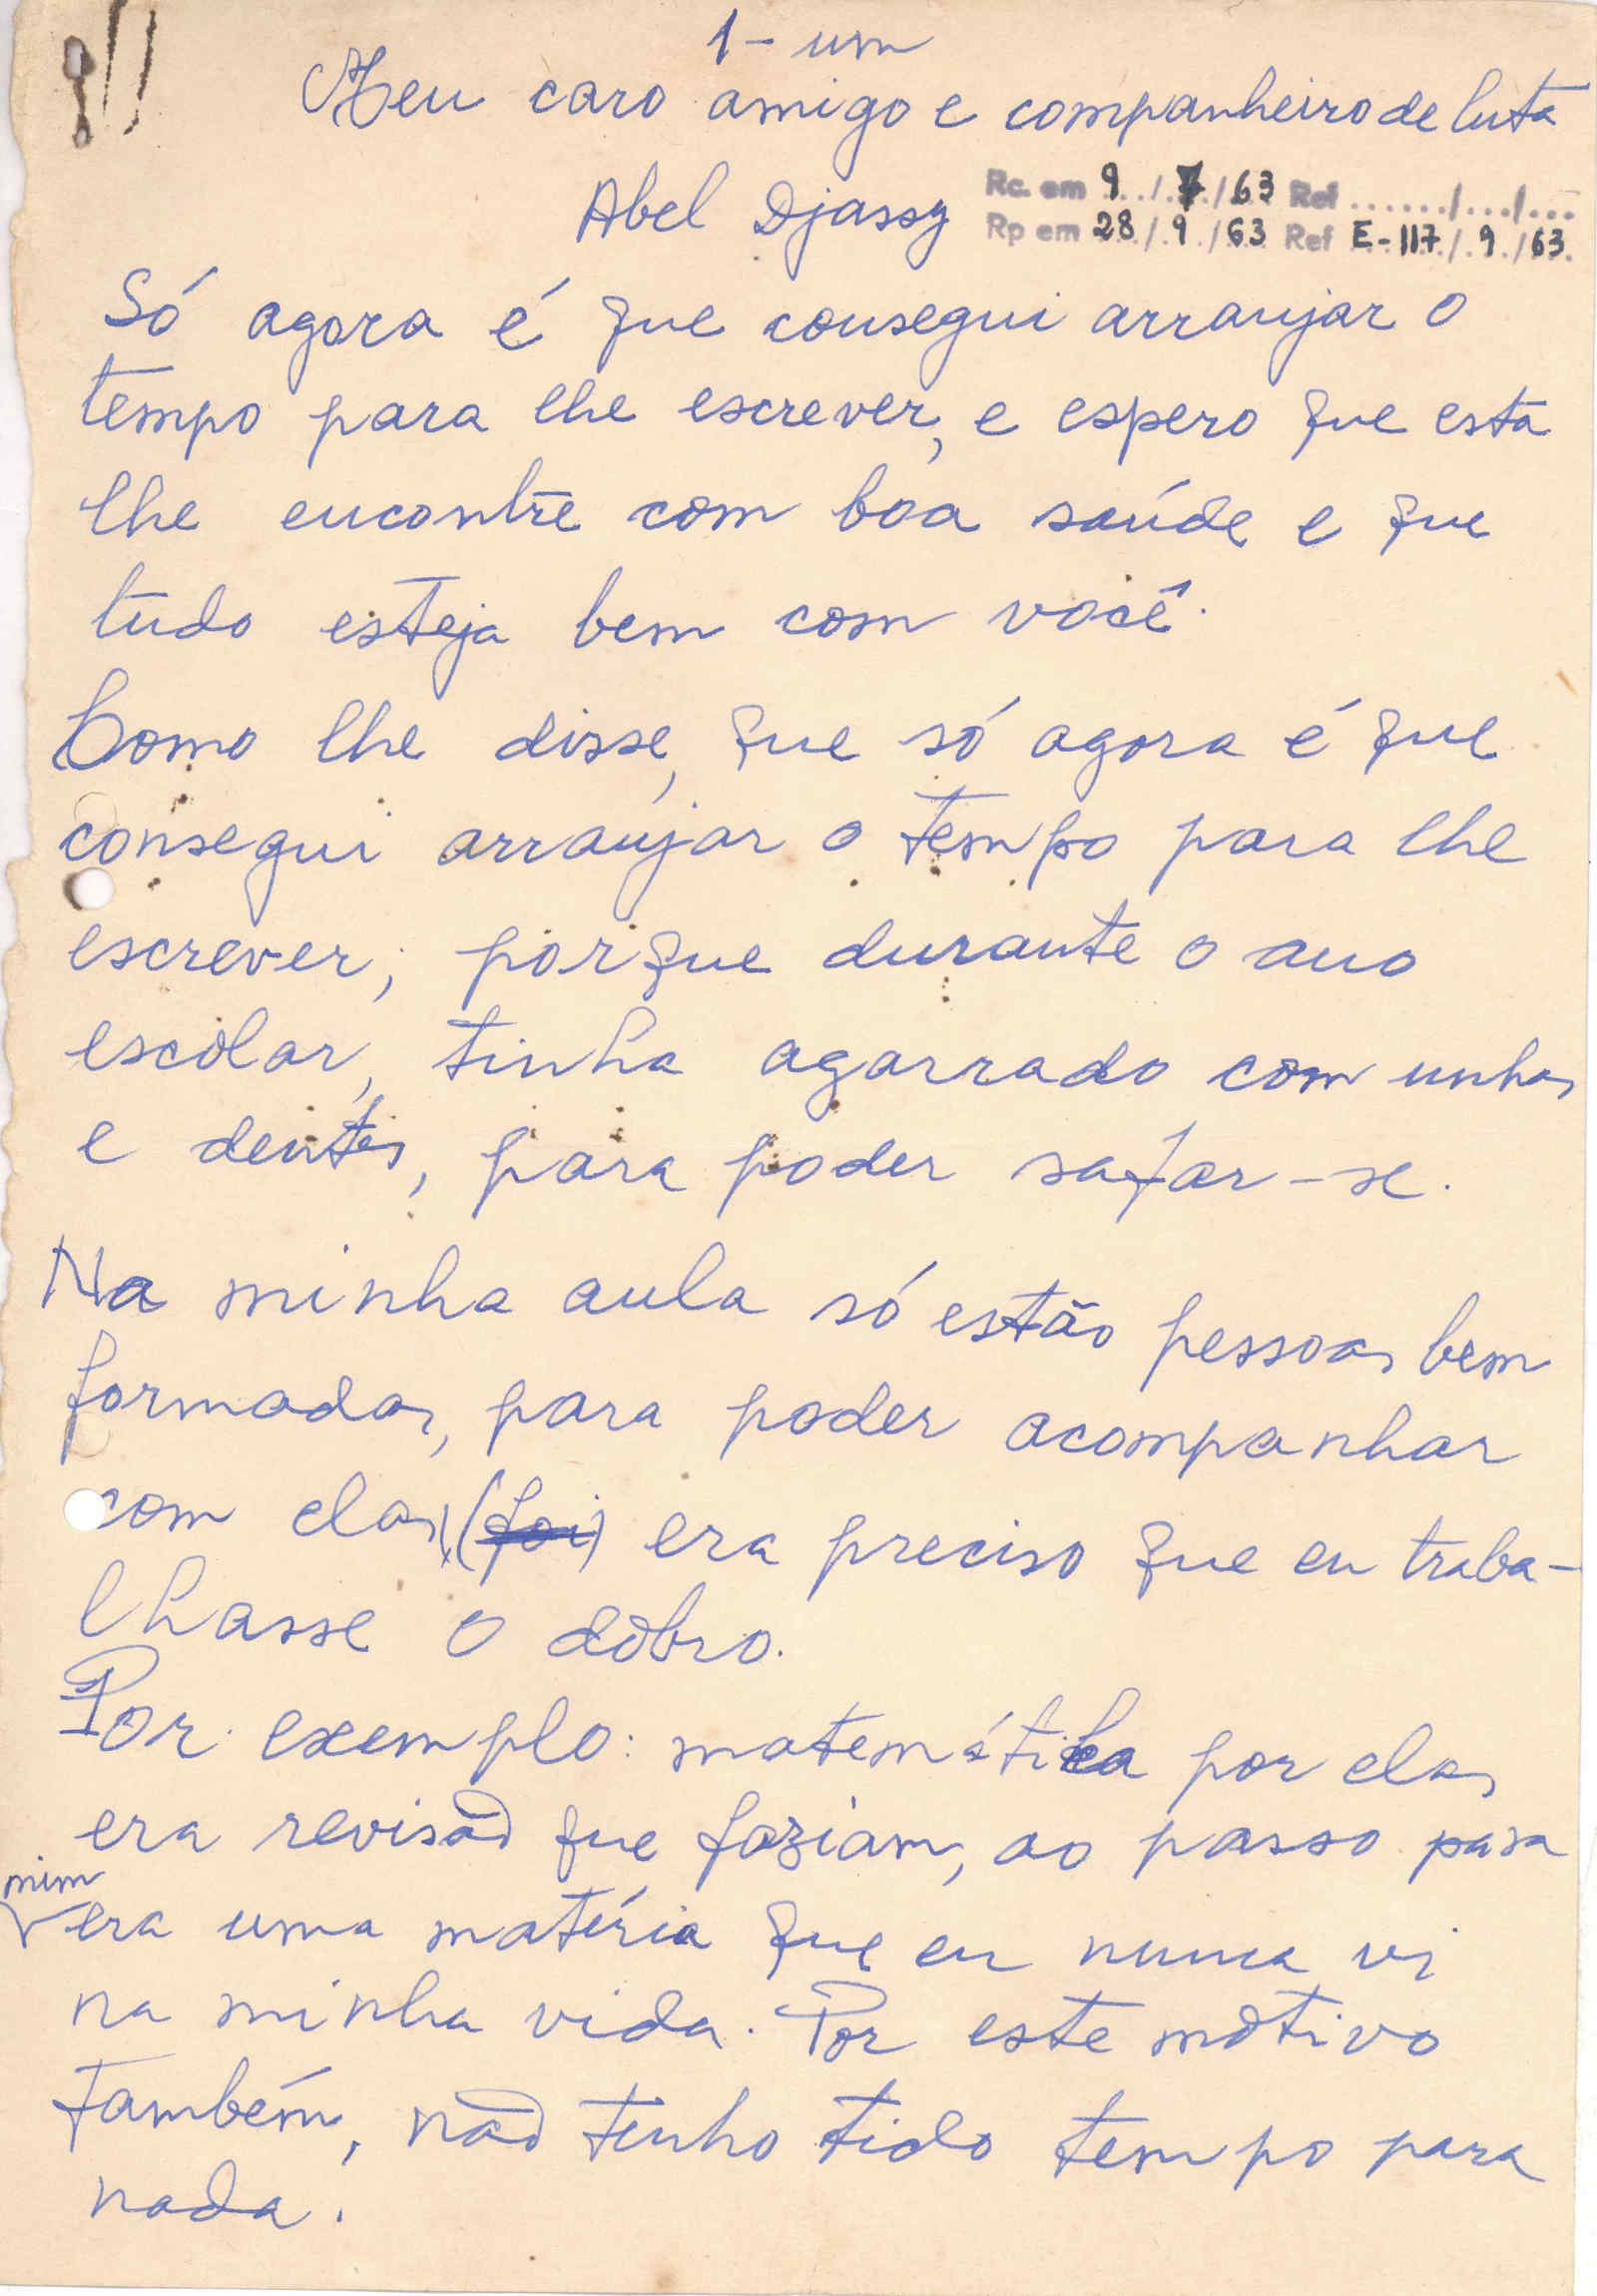 1- um
Meu caro amigo e companheiro de luta
Abel Djassy
Rc. em 9../.7./.63 Ref ....../.../...
Rp em 28/.9./63 Ref E-117/.9./63.
Só agora é que consegui arranjar o
tempo para lhe escrever, e espero que esta
lhe encontre com boa saúde e que
tudo esteja bem com você.
Como lhe disse, que só agora é que
consegui arranjar o tempo para lhe
escrever; porque durante o ano
escolar, tinha agarrado com unhas
e dentes, para poder safar-se.
Na minha aula só estão pessoas bem
formadas, para poder acompanhar
com elas, (foi) era preciso que eu traba-
lhasse o dôbro.
Por exemplo: matemática por elas
era revisão que faziam, ao passo para
mim
era uma matéria que eu nunca vi
na minha vida. Por este motivo
também, não tenho tido tempo para
nada.